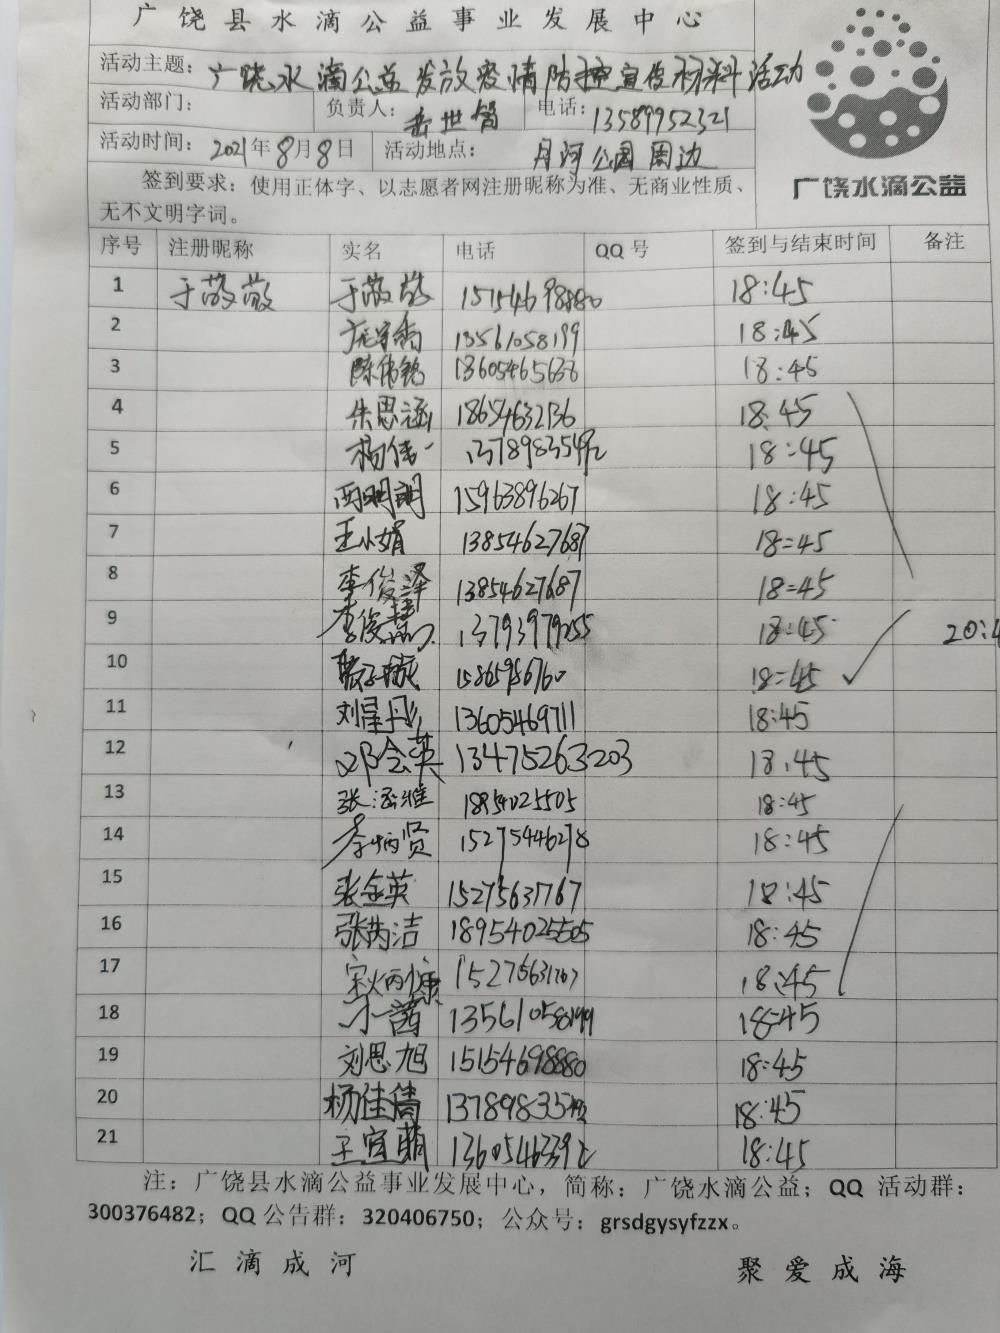 广饶县水滴公益事业发展中心
活动主题：广饶水滴公益发放疫情防控宣传材料活动
活动部门： 负责人： 岳世智 电话：13589952321
活动时间：2021年8月8日 活动地点： 月河公园周边
广饶水滴公益
签到要求：使用正体字、以志愿者网注册昵称为准、无商业性质、
无不文明字词。
序号 注册昵称 实名 电话 QQ号 签到与结束时间 备注
1 于敬敬 于敬敬 15154698880 18:45
2 13561058199 18:45
3 陈伟铭 13605465636 18:45
4 朱思涵 18654632136 18:45
5 杨佳一 18:45
6 15963896267 18:45
7 王小娟 13854627687 18=45
8 李俊泽 13854627687 18=45
9 13793979255 18=45 20:4
10 18=45
11 刘星丹 13605469711 18:45
12 邓会英 13475263203 18:45
13 张涵雅 18954025505 18:45
14 李炳贤 15275446278 18:45
15 张金英 15275631767 18:45
16 张芮洁 18954025505 18:45
17 15275631767 18:45
18 小茜 13561058199 18=45
19 刘思旭 15154698880 18:45
20 杨佳倩 18:45
21 王宜萌 18:45
注：广饶县水滴公益事业发展中心，简称：广饶水滴公益；QQ 活动群：
300376482；QQ 公告群：320406750；公众号：grsdgysyfzzx。
汇滴成河 聚爱成海